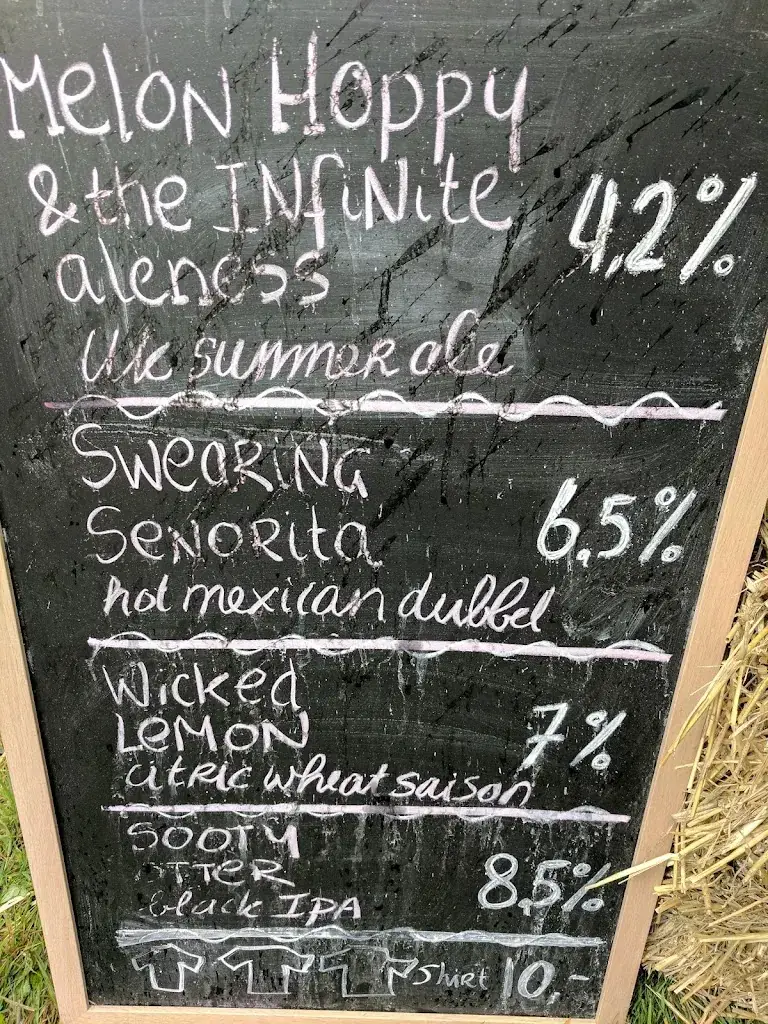 Melon Hoppy
& the Infinite
aleness
4,2%
UK summer ale
Swearing
Senorita
6,5%
hot mexican dubbel
Wicked
Lemon
7%
citric wheat saison
Sooty
Otter
8,5%
black IPA
Shirt 10,-